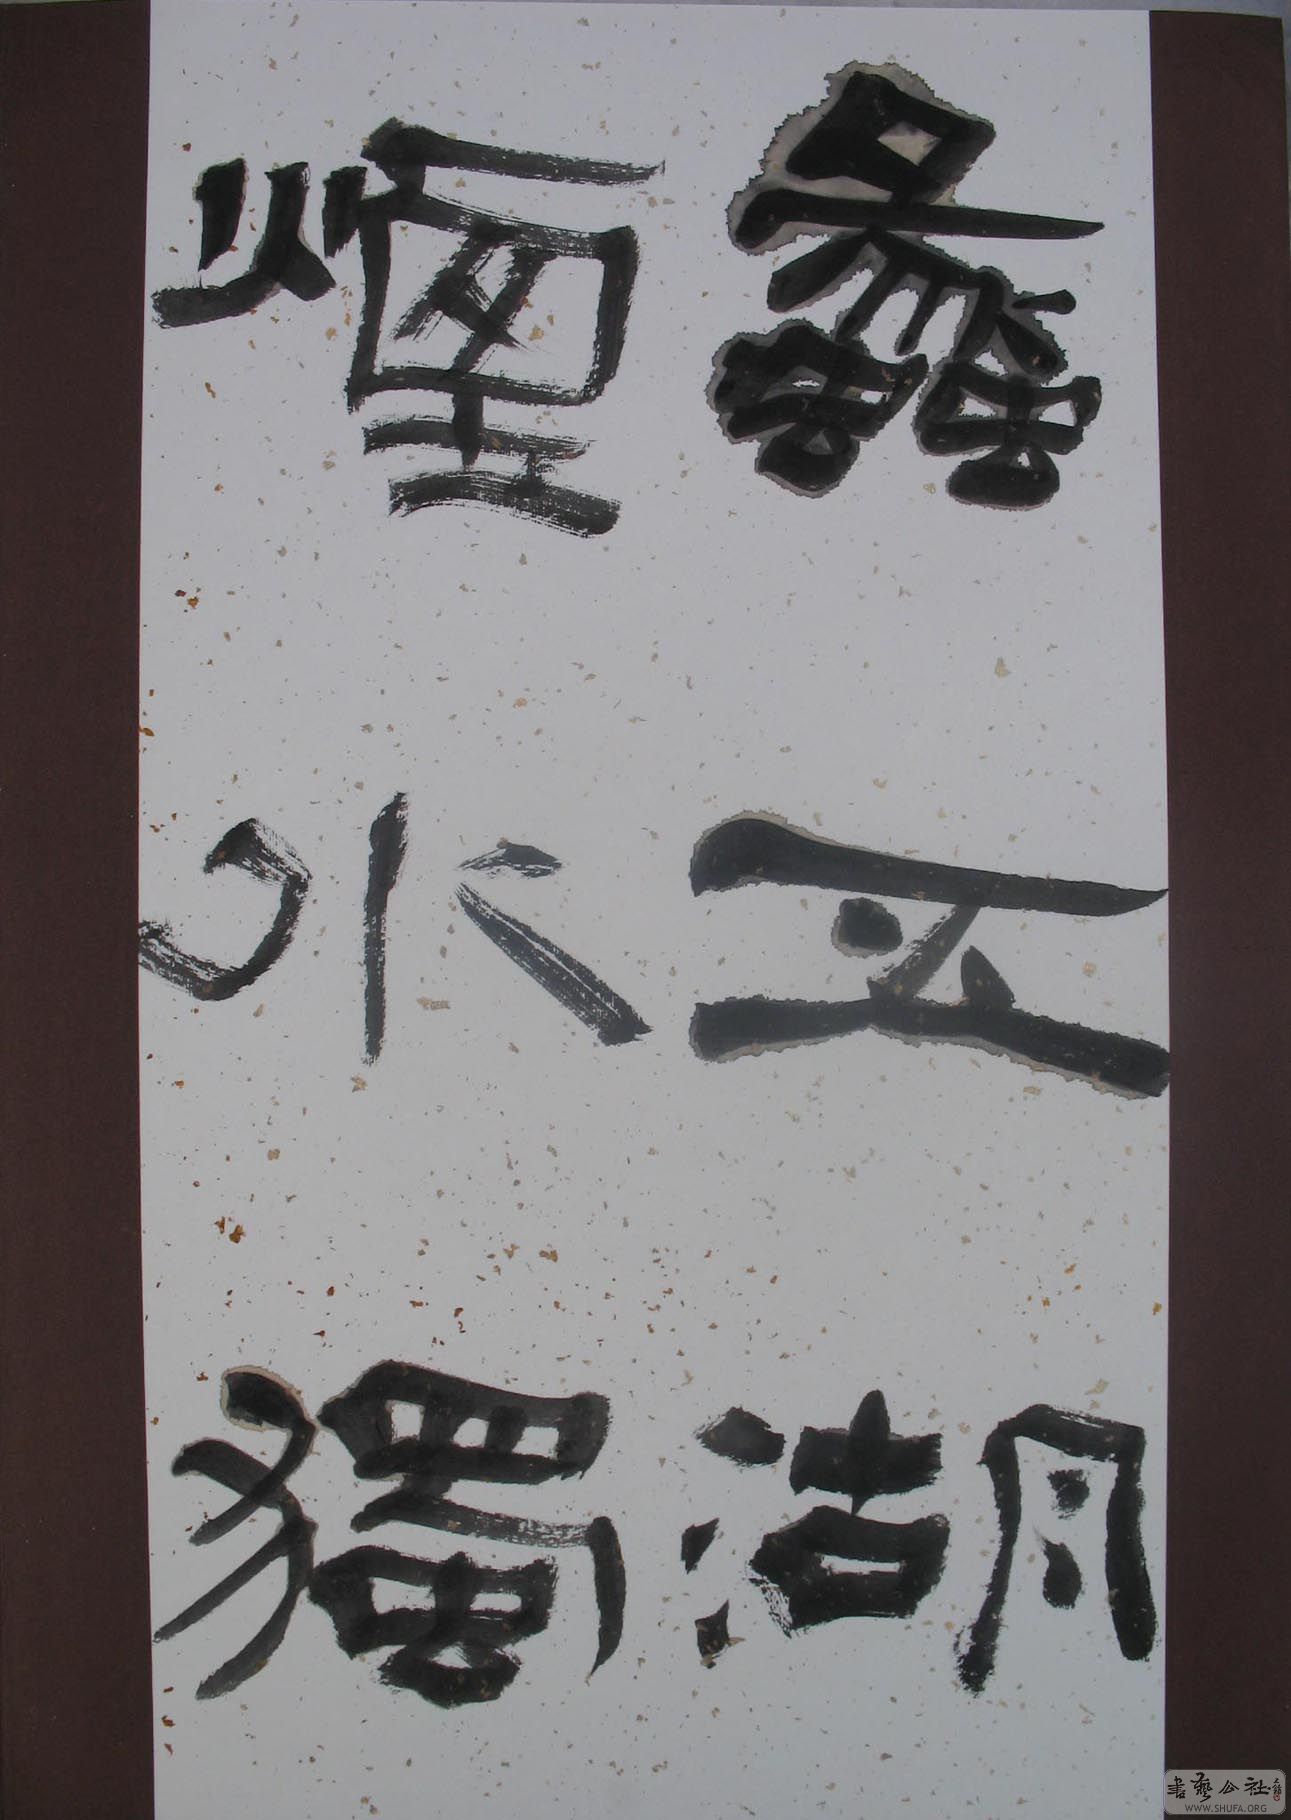 蠡五湖
煙水獨
書藝公社
WWW.SHUFA.ORG